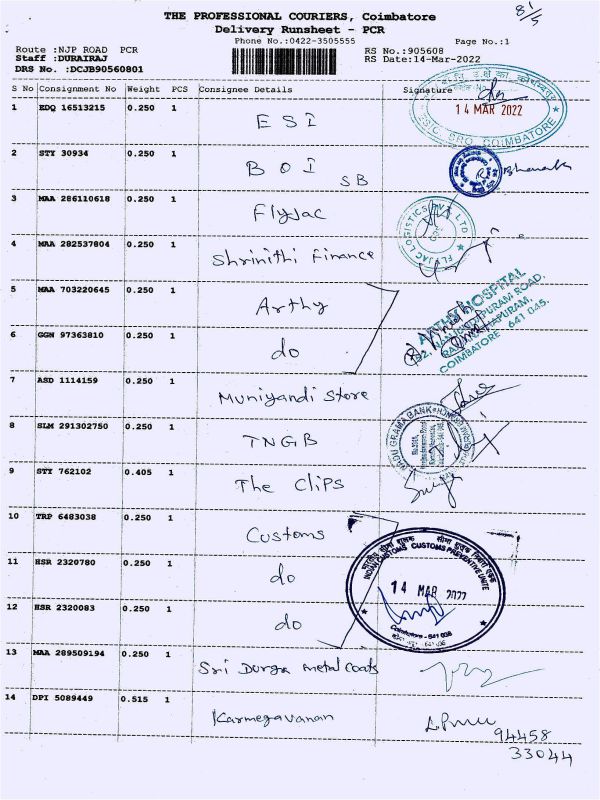 81/5
THE PROFESSIONAL COURIERS, Coimbatore
Delivery Runsheet - PCR
Phone No.:0422-3505555 Page No.:1
Route :NJP ROAD PCR RS No.:905608
Staff :DURAIRAJ RS Date:14-Mar-2022
DRS No. :DCJB90560801
S No Consignment No Weight PCS Consignee Details Signature
1 EDQ 16513215 0.250 1 ESI
14 MAR 2022
COIMBATORE
2 STY 30934 0.250 1 BOI SB
3 MAA 286110618 0.250 1 Flyjac
FLYJAC LOGISTICS PVT. LTD
4 MAA 282537804 0.250 1 Shrinithi Finance
5 MAA 703220645 0.250 1 Arthy
ARTHY HOSPITAL
COIMBATORE 641 045.
6 GGN 97363810 0.250 1 do
7 ASD 1114159 0.250 1 Muniyandi Store
8 SLM 291302750 0.250 1 TNGB
GRAMA BANK
9 STY 762102 0.405 1 The Clips
10 TRP 6483038 0.250 1 Customs
11 HSR 2320780 0.250 1 do
INDIAN CUSTOMS CUSTOMS PREVENTIVE UNIT
14 MAR 2022
12 HSR 2320083 0.250 1 do
Coimbatore - 641 036
13 MAA 289509194 0.250 1 Sri Durga metal Coats
14 DPI 5089449 0.515 1 Karmegavanan
94458
33044